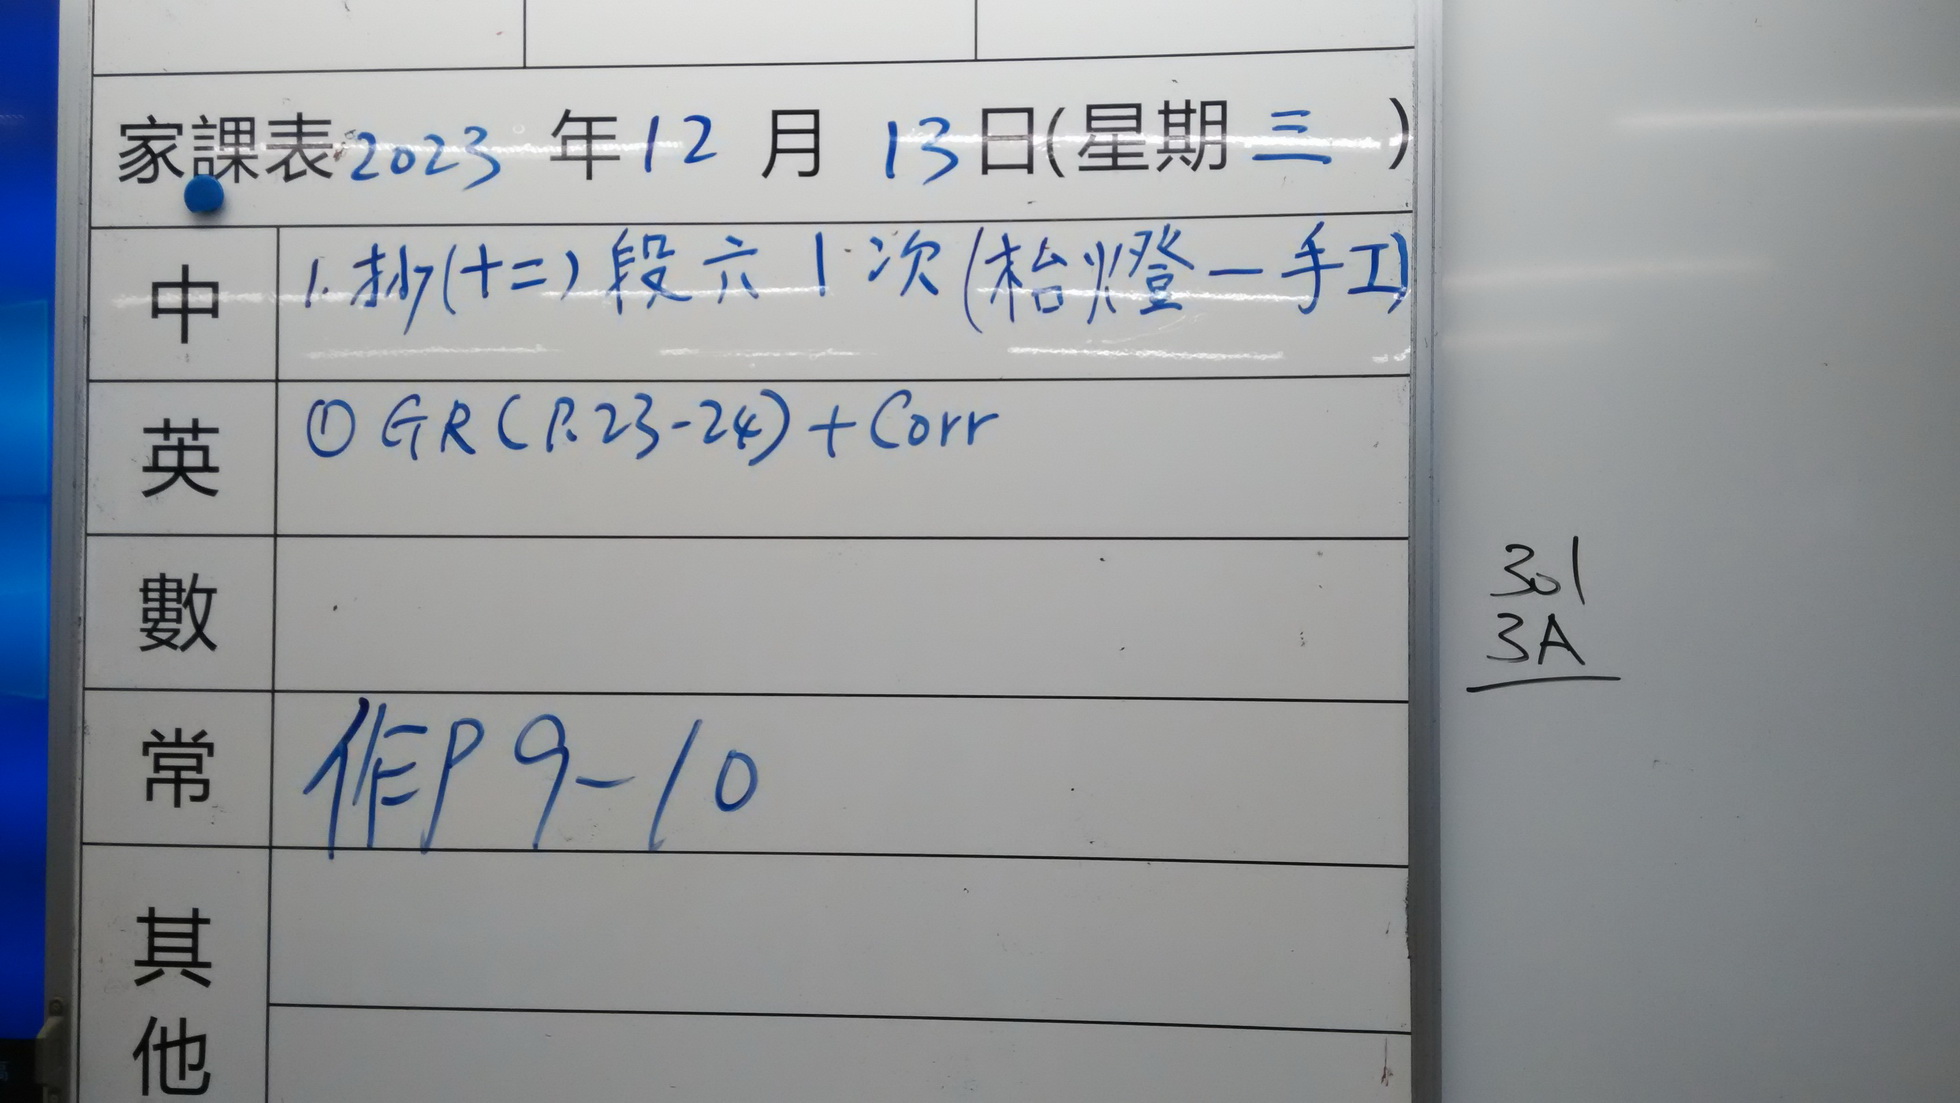 家課表 2023 年 12 月 13 日(星期 三 )
中
1. 抄(十二)段六 1 次(枱燈一手工)
英
① GR (P.23-24) + Corr
數
常
作P 9-10
其他
301
3A